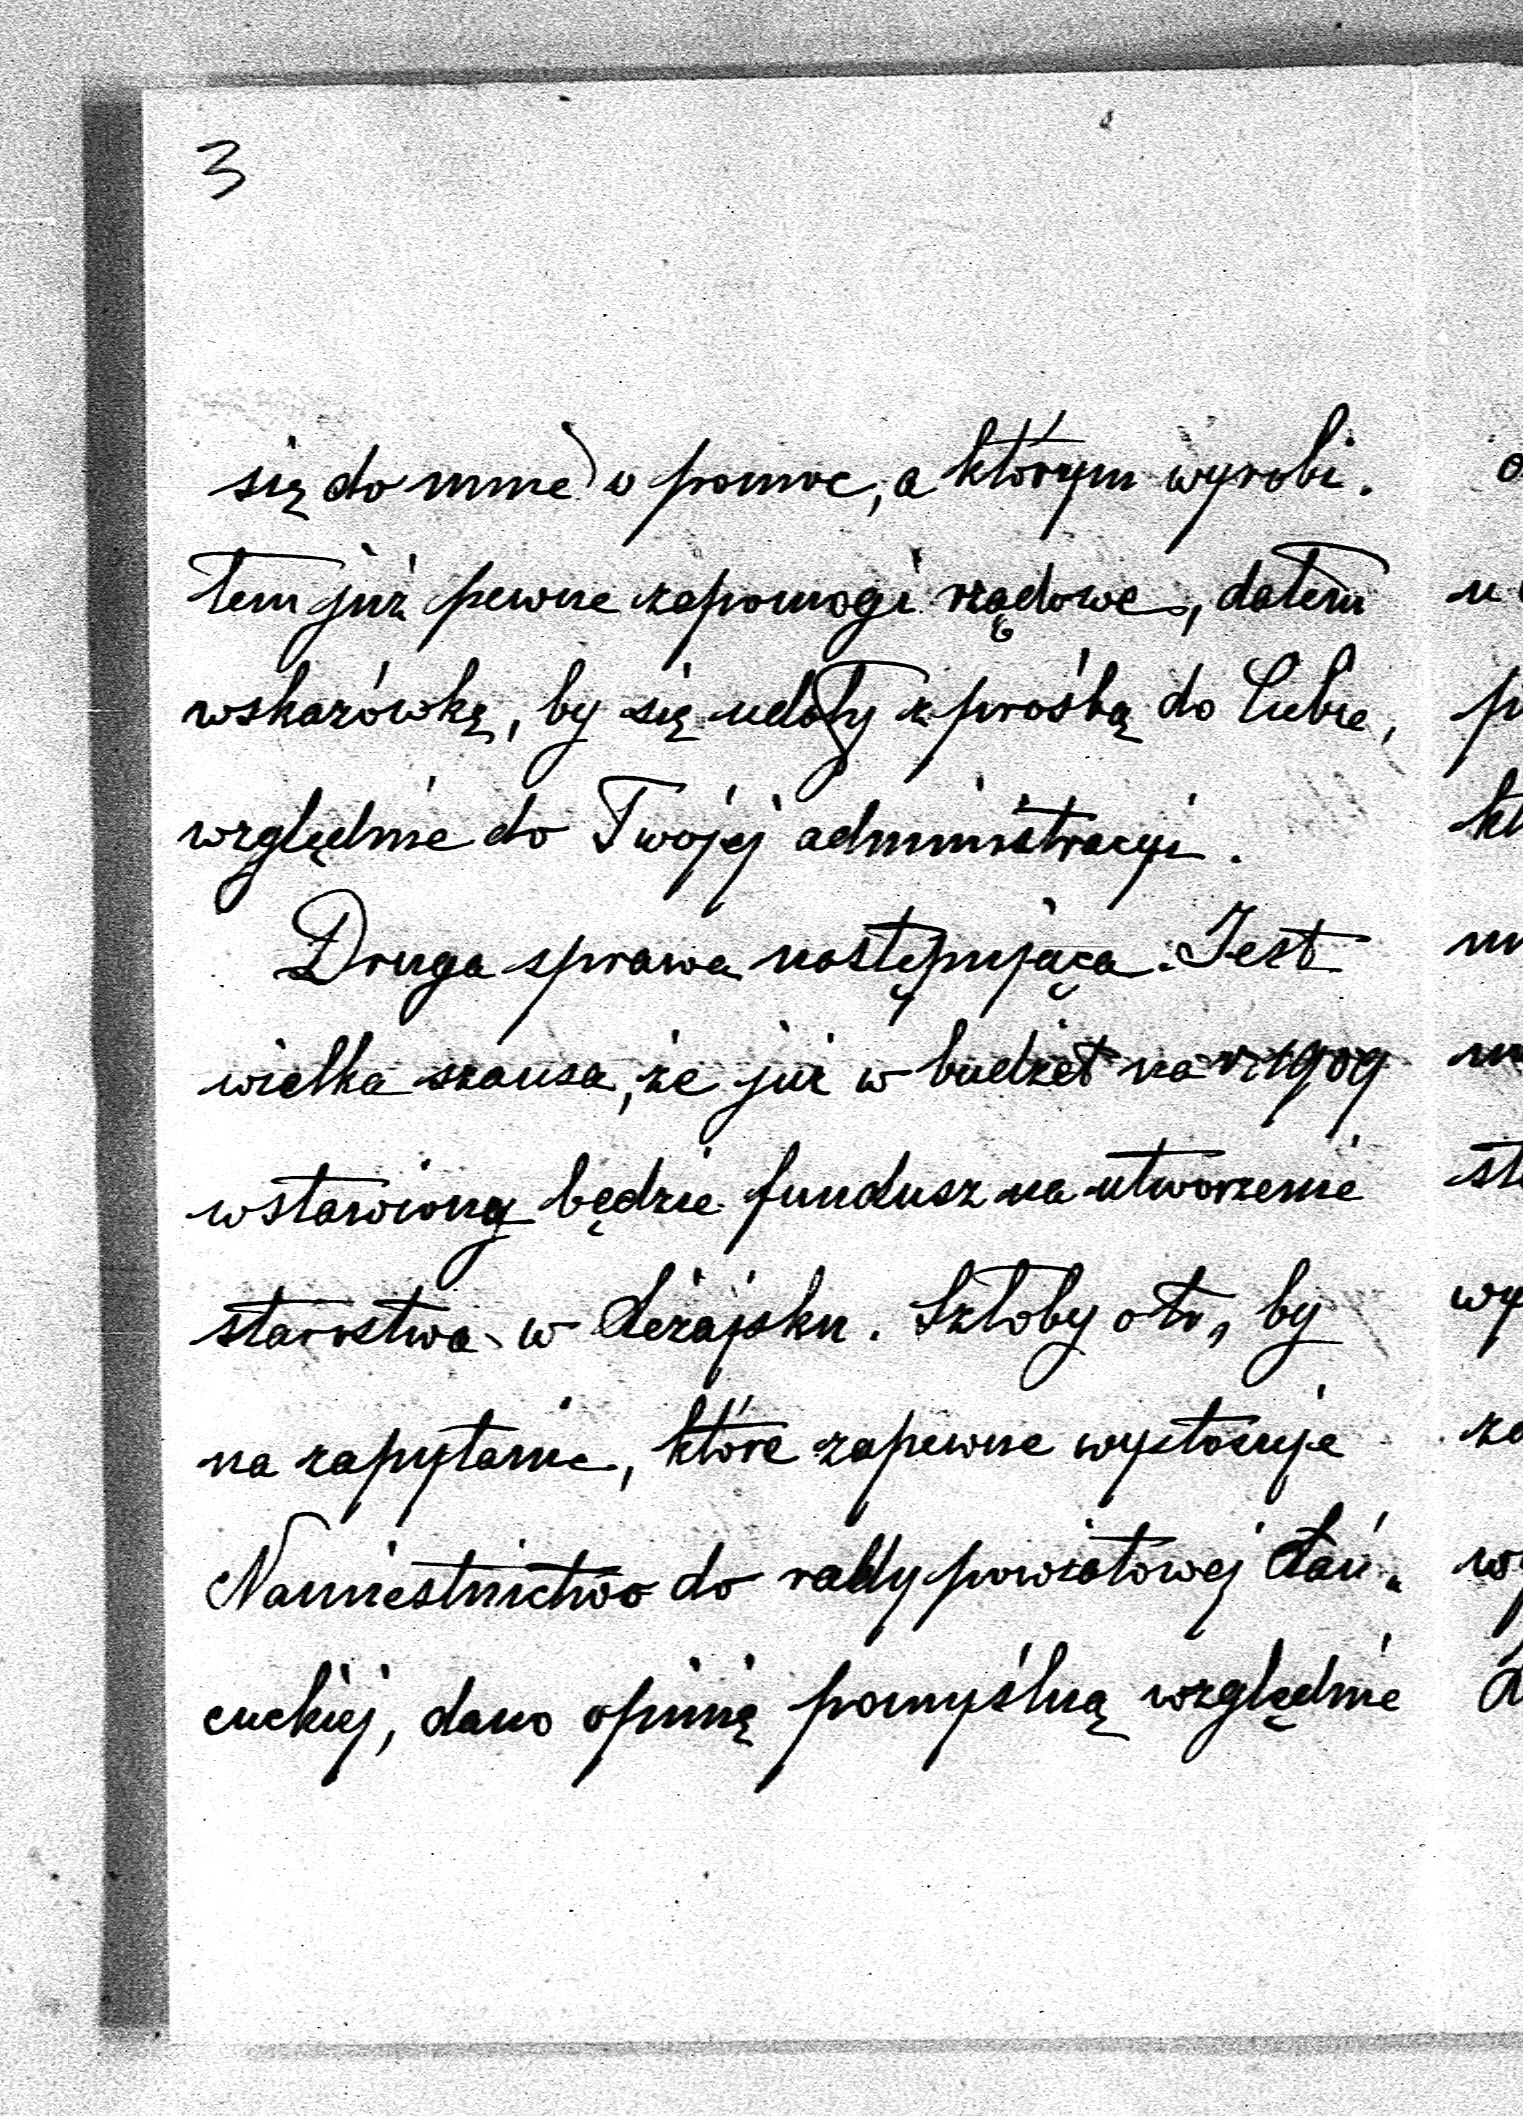 3
się do mnie o pomoc, a którym wyrobi.
łem już pewne zapomogi rządowe, dałem
wskazówkę, by się udały z prośbą do Ciebie,
względnie do Twojej administracyi.
Druga sprawa następująca. Jest
wielka szansa, że już w budżet na r. 1909
wstawiony będzie fundusz na utworzenie
starostwa w Leżajsku. Szłoby o to, by
na zapytanie, które zapewne wystosuje
Namiestnictwo do rady powiatowej łań.
cuckiej, dano opinię pomyślną względnie